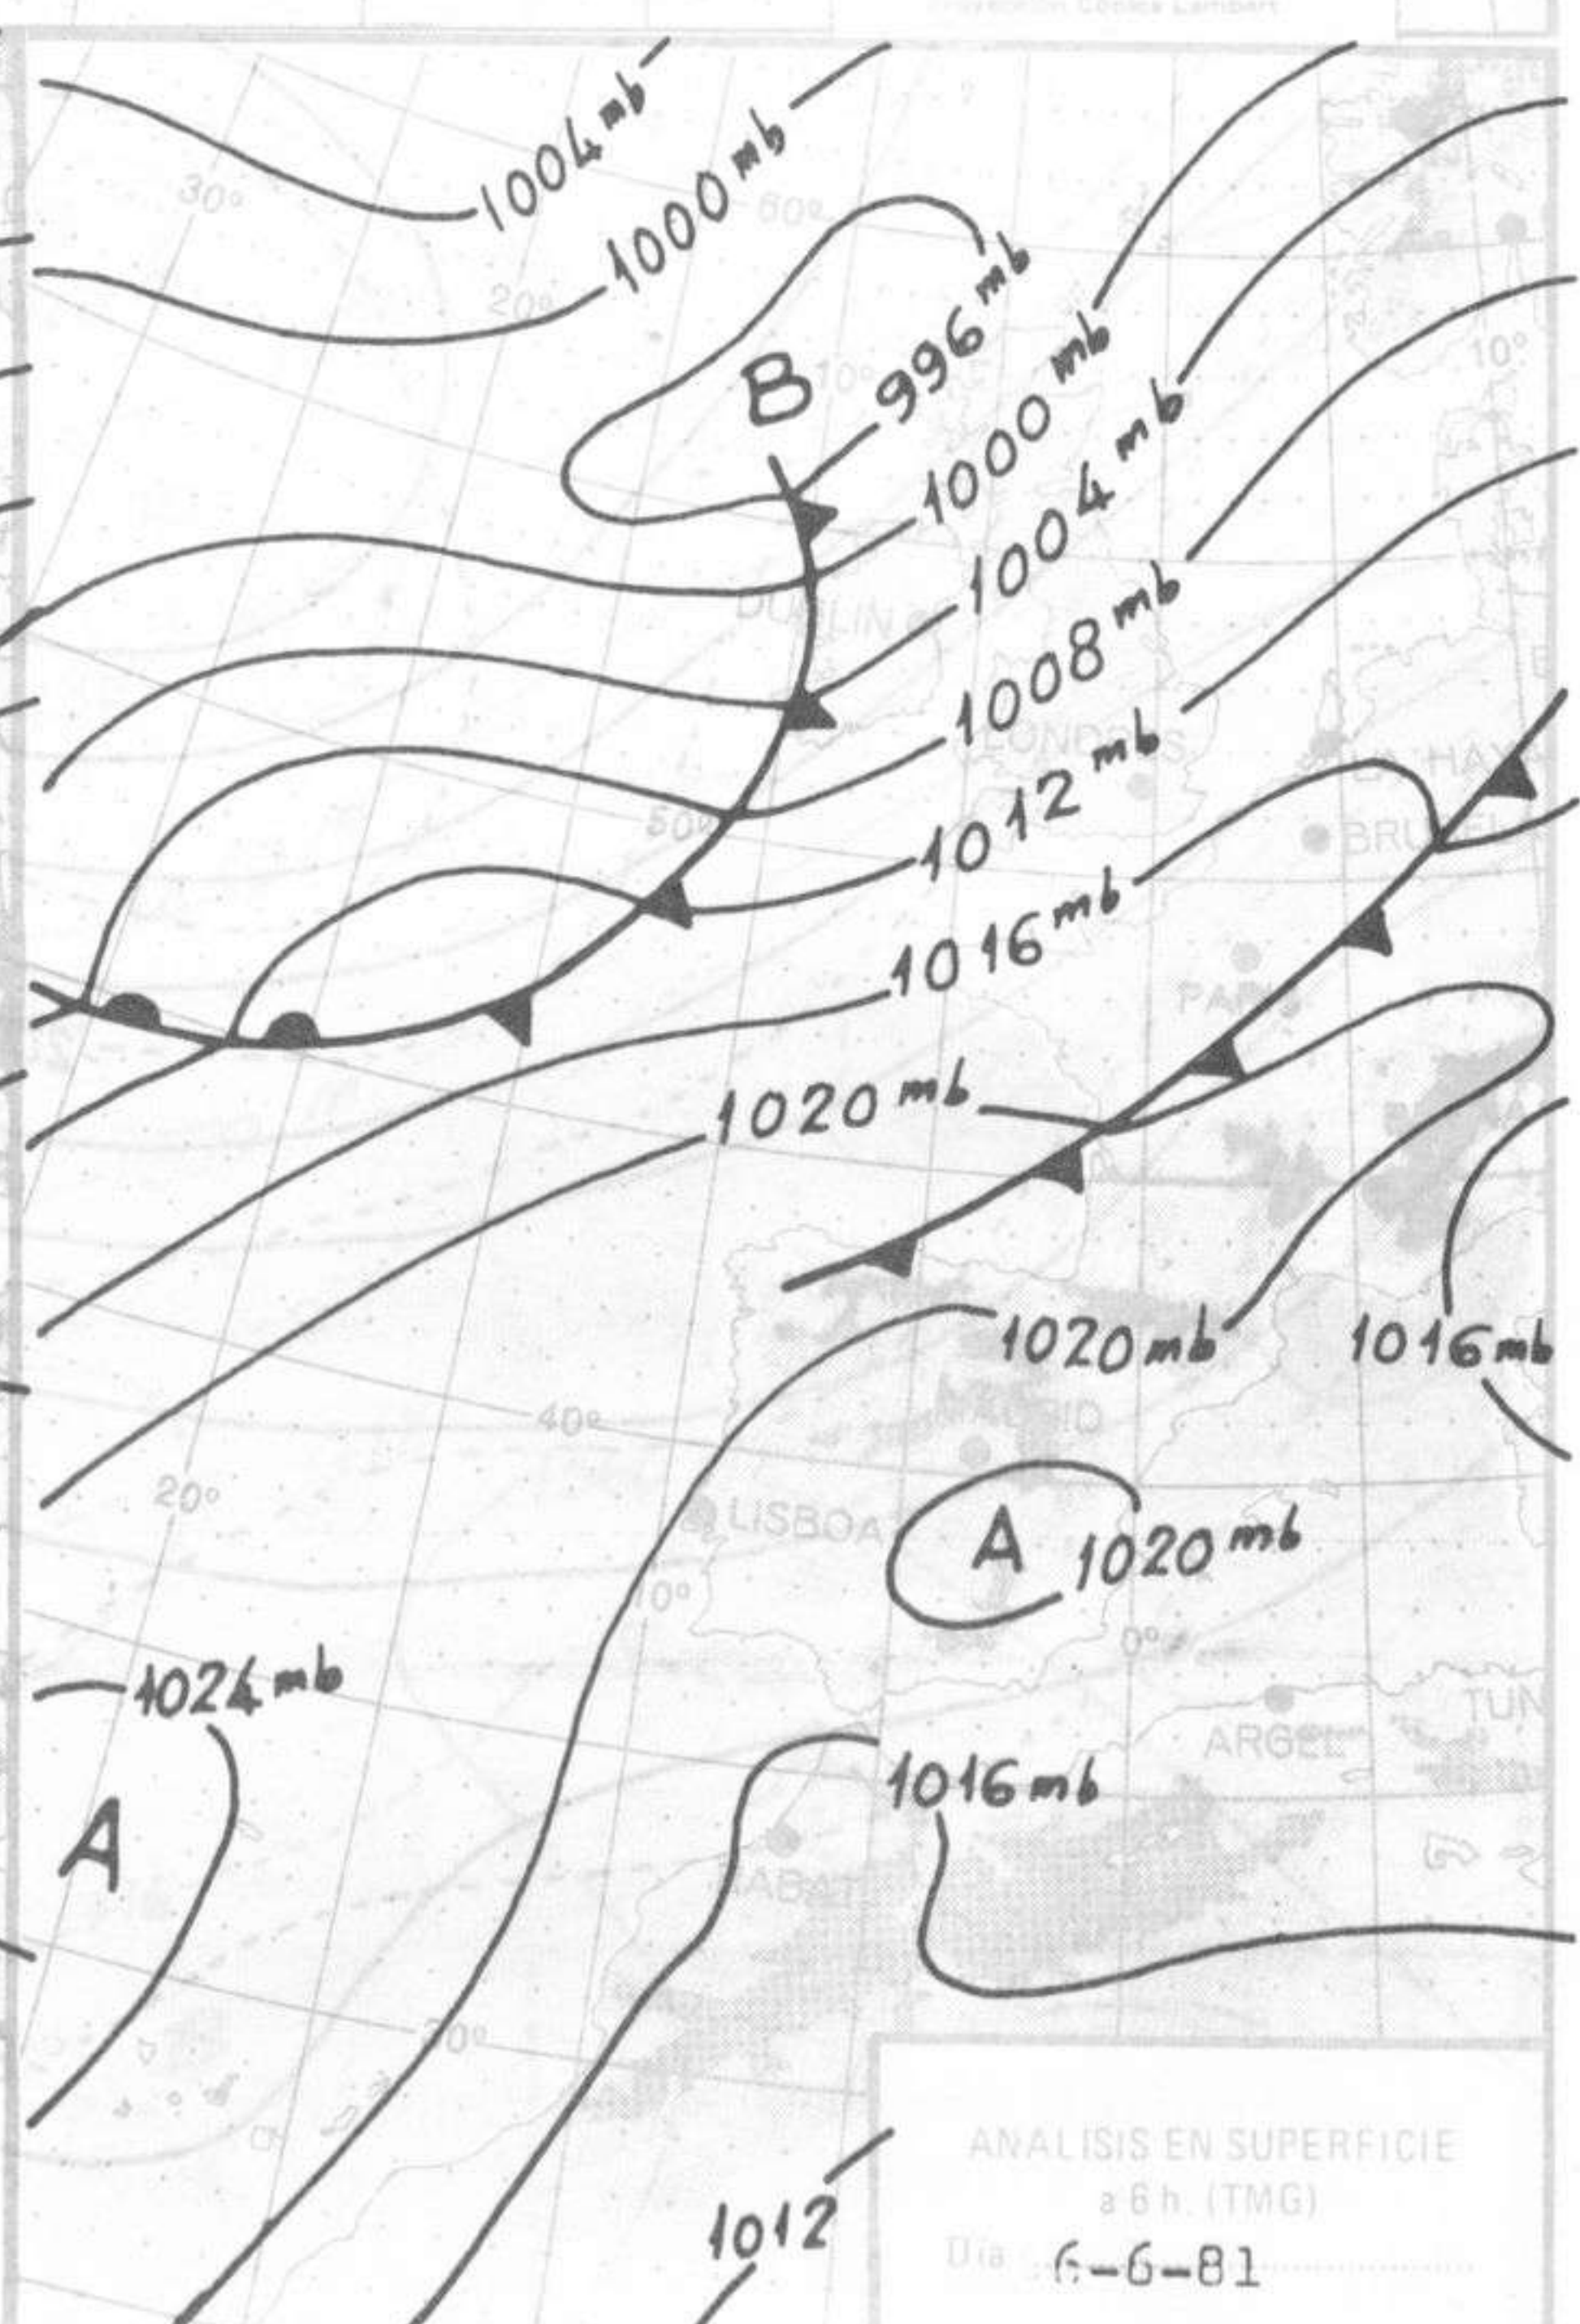 Proyección Cónica Lambert
1004 mb
1000 mb
30°
60°
20°
996 mb
B
10°
1000 mb
10°
1004 mb
DUBLIN
1008 mb
LONDRES
1012 mb
50°
BRUSELAS
1016 mb
PARIS
1020 mb
1020 mb
1016 mb
40°
MADRID
20°
LISBOA
A
1020 mb
10°
0°
1024 mb
TUN
ARGEL
1016 mb
A
RABAT
30°
ANALISIS EN SUPERFICIE
a 6 h. (TMG)
1012
Día 6-6-81